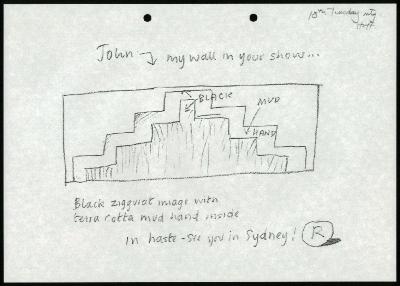 10th Tuesday
John → my wall in your show...
BLACK
MUD
HAND
Black ziggurat image with
terra cotta mud hand inside
in haste - see you in Sydney! R